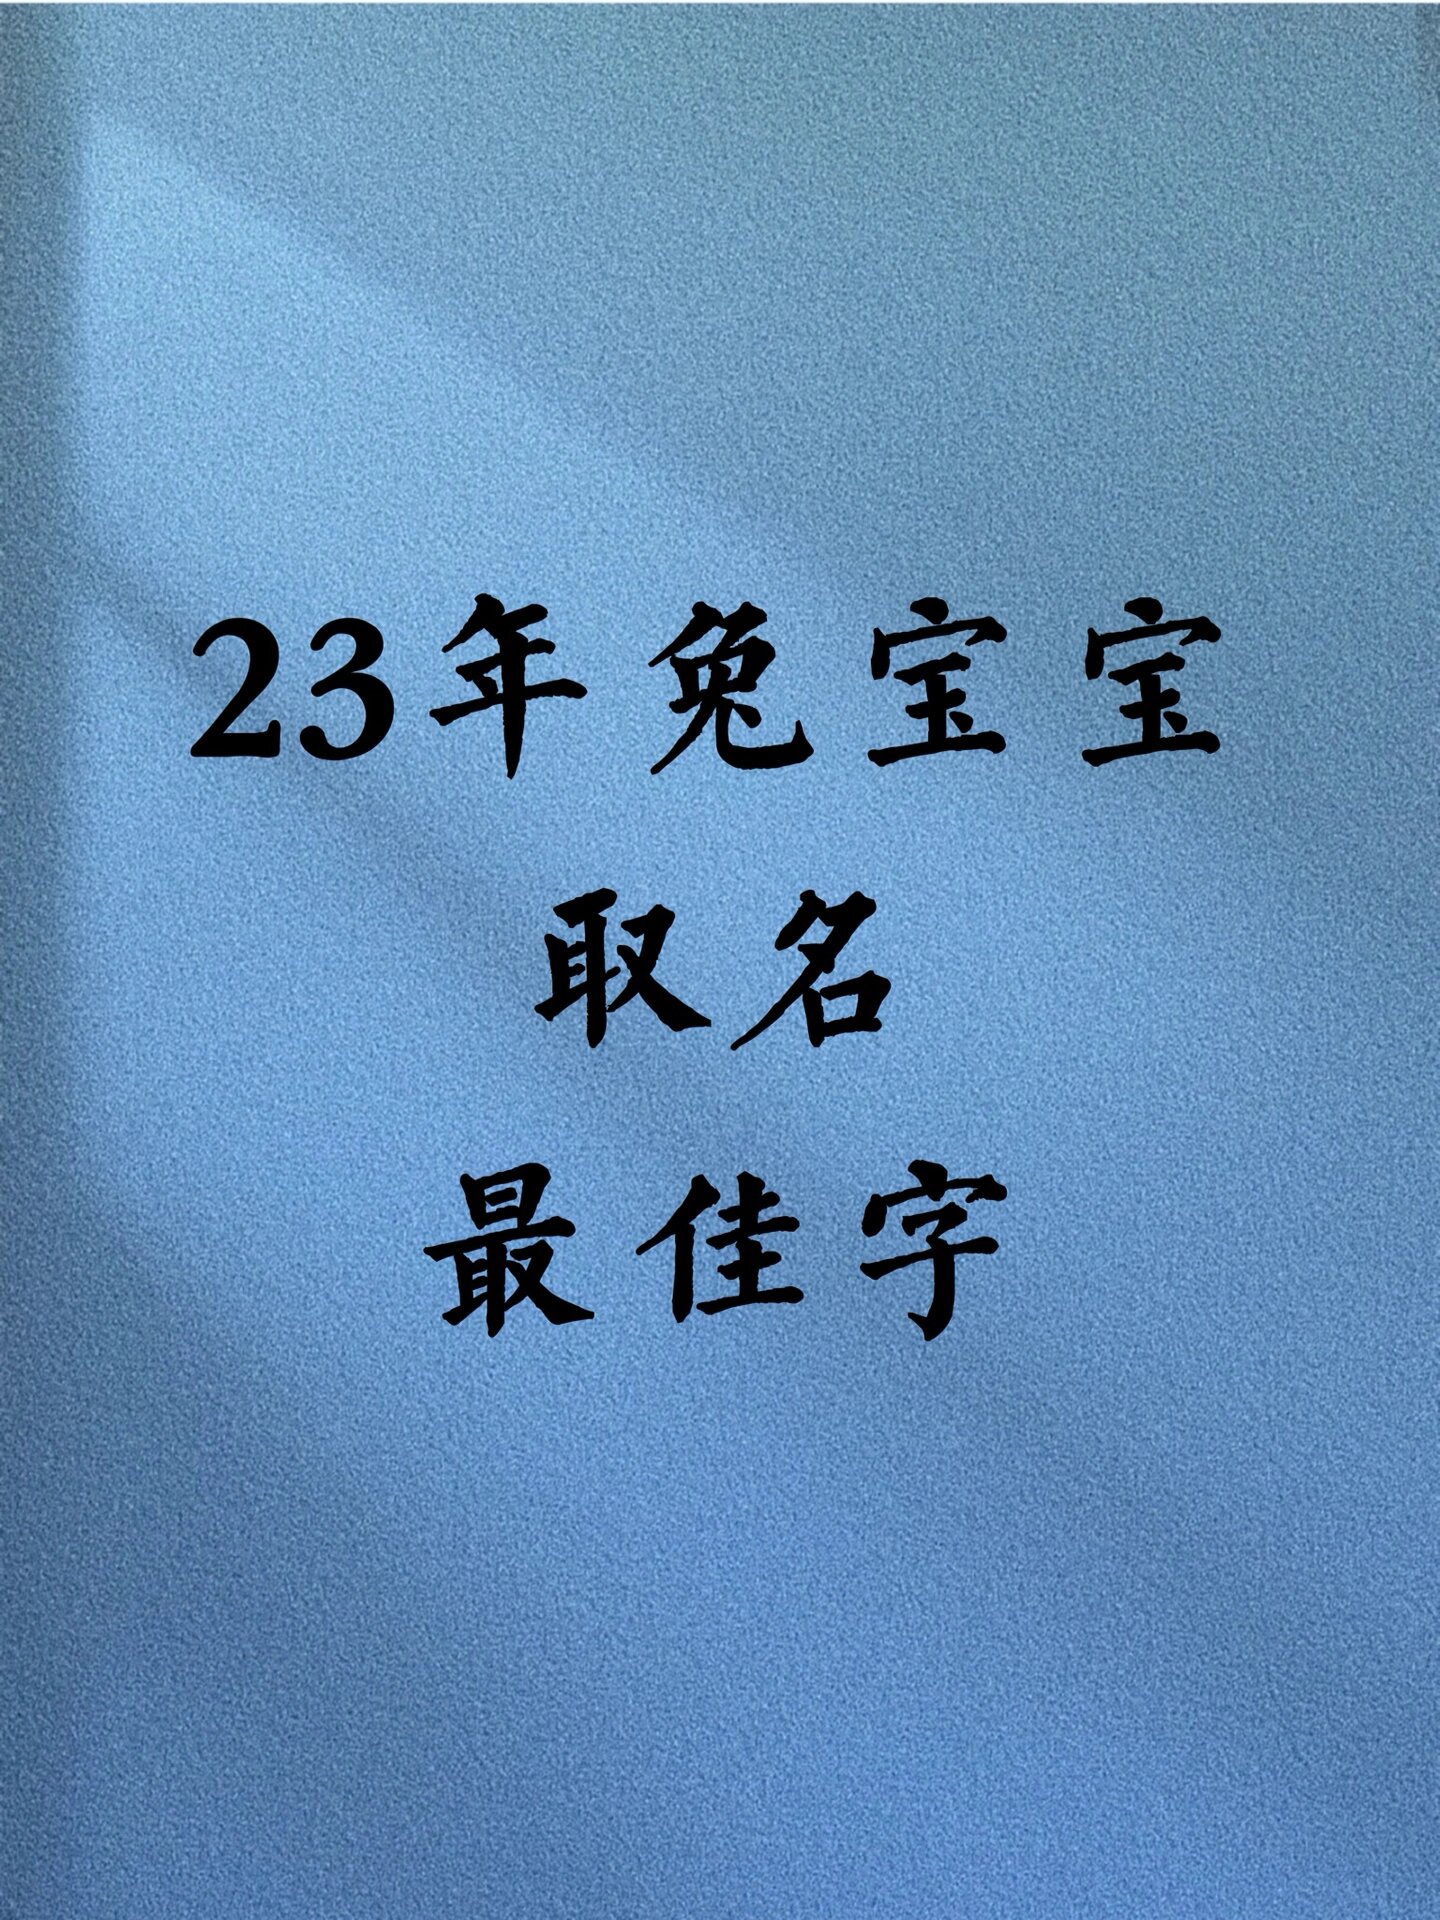 23年兔宝宝
取名
最佳字